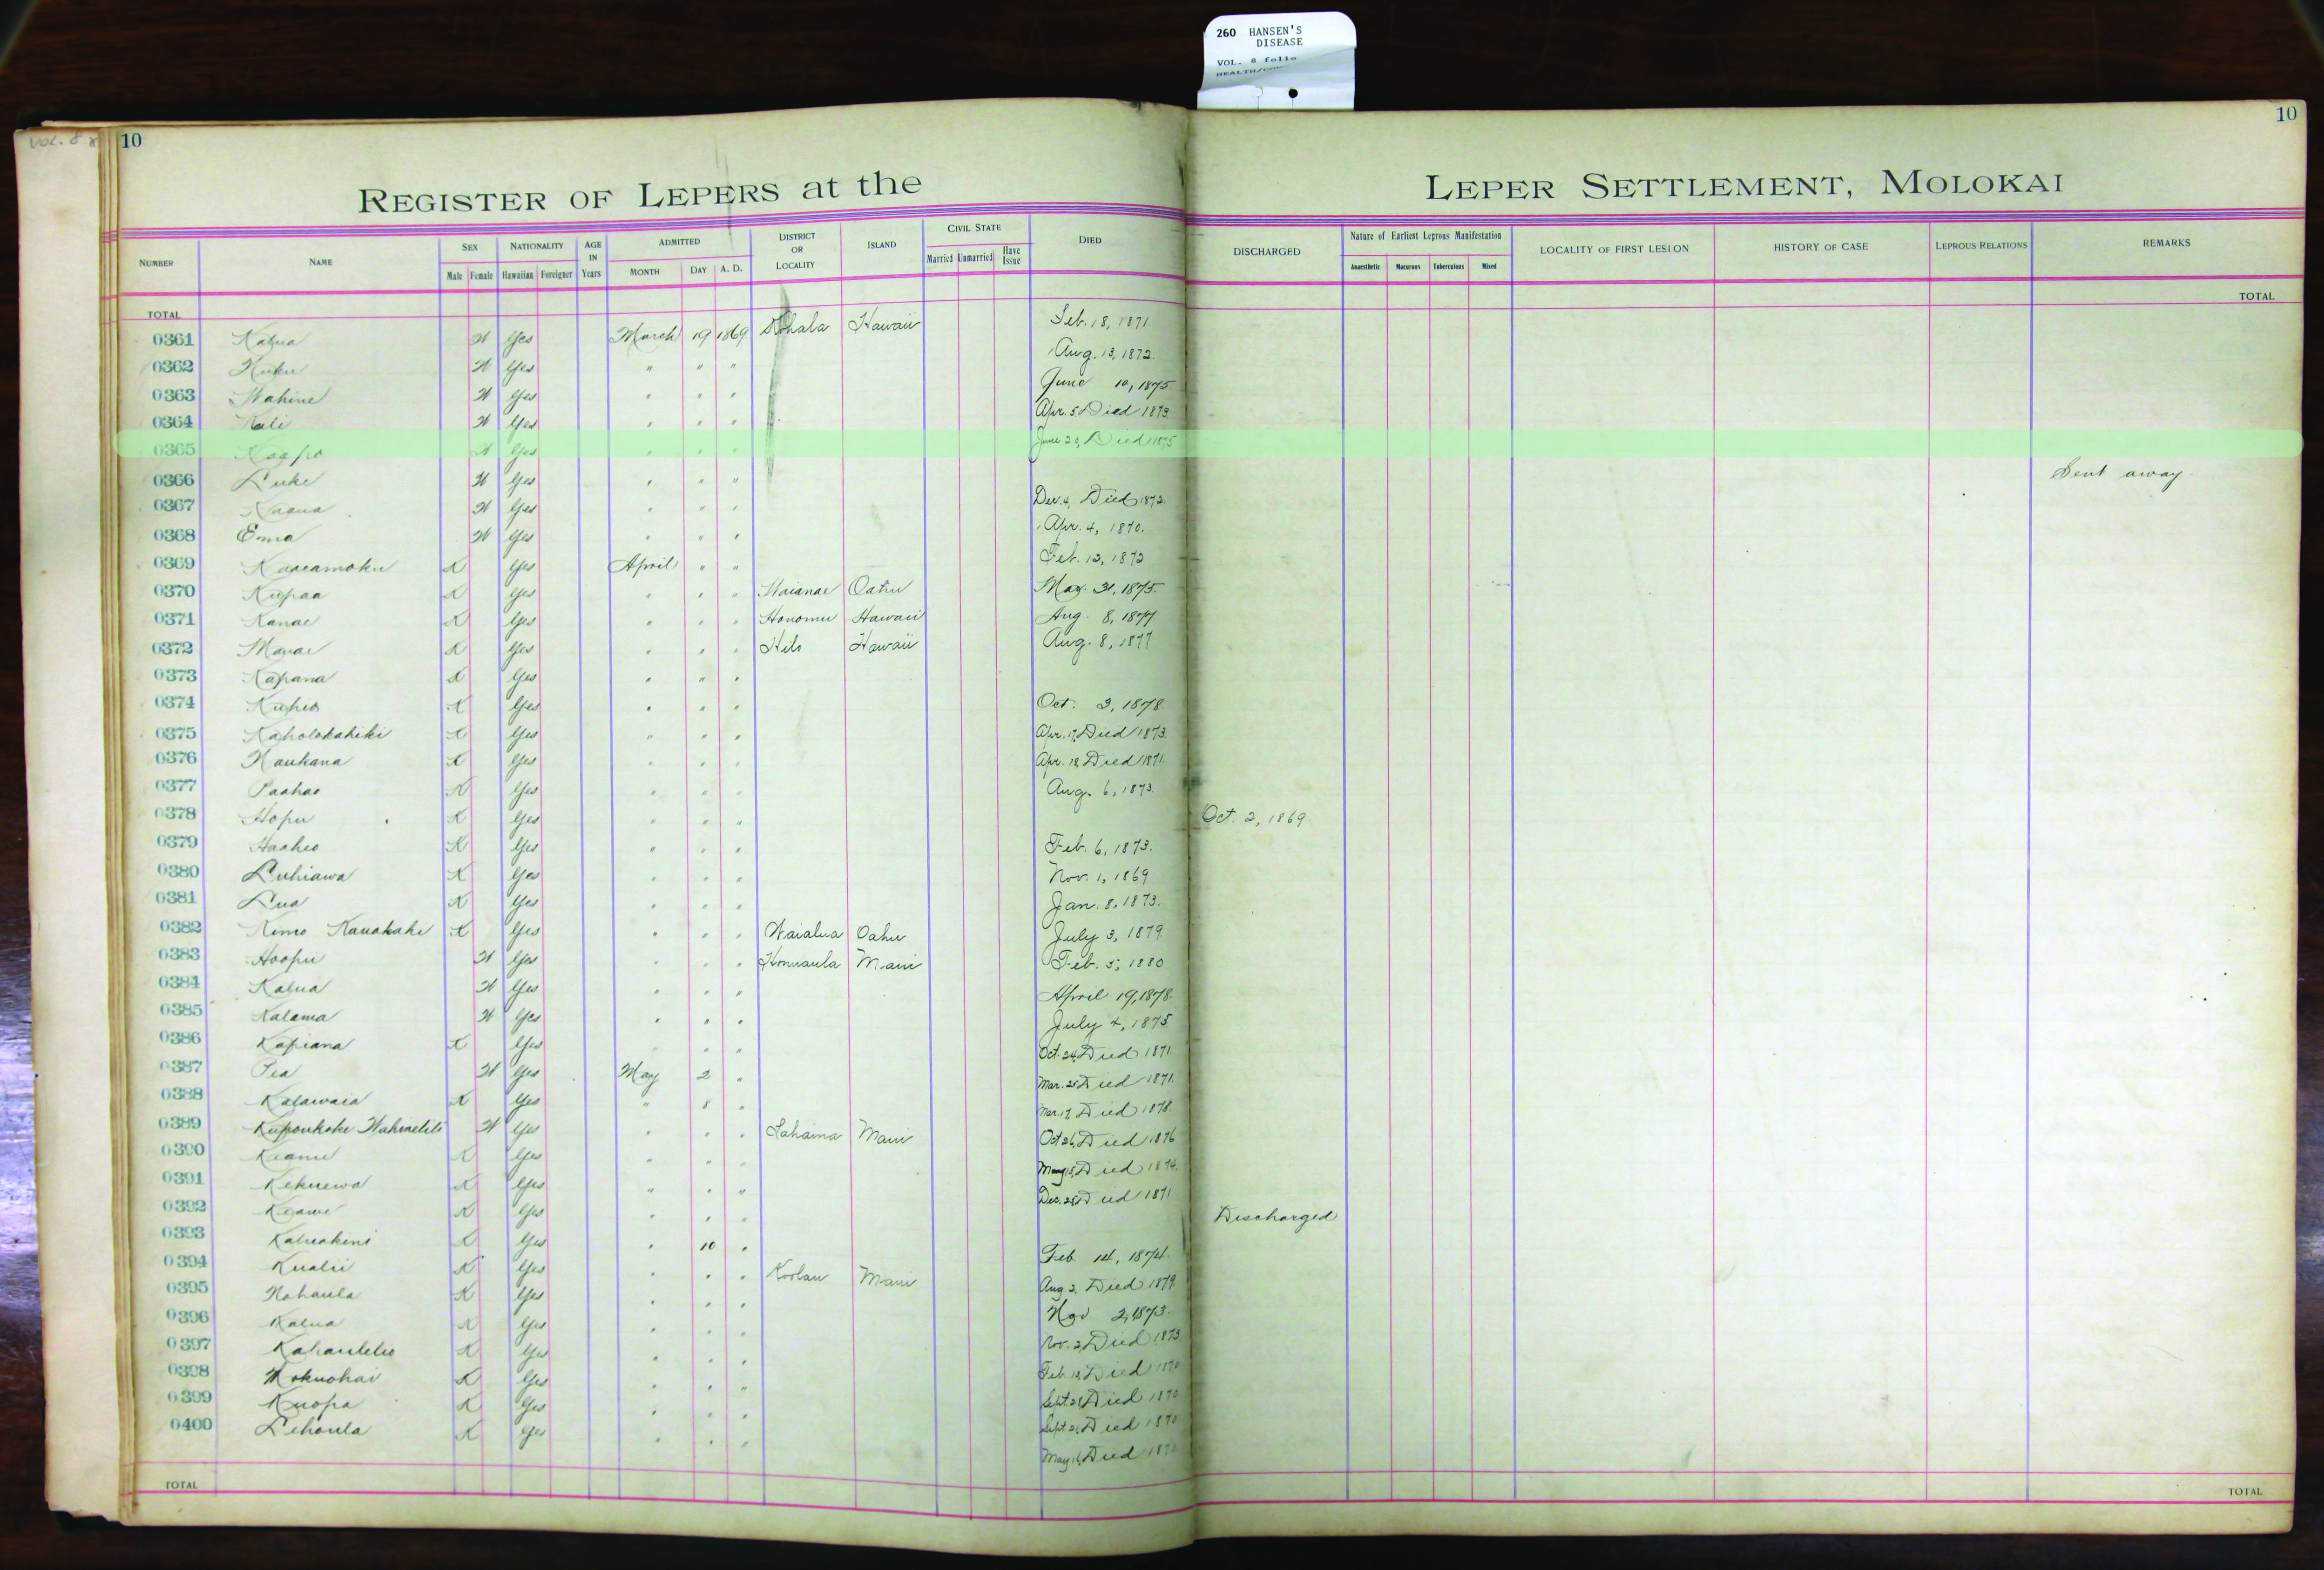 260 HANSEN'S
DISEASE
VOL. 8 folio
VOL. 8
10
10
REGISTER OF LEPERS at the LEPER SETTLEMENT, MOLOKAI
NUMBER NAME SEX Male Female NATIONALITY Hawaiian Foreigner AGE IN Years ADMITTED MONTH DAY A. D. DISTRICT OR LOCALITY ISLAND CIVIL STATE Married Unmarried Have Issue DIED DISCHARGED Nature of Earliest Leprous Manifestation Anaesthetic Macurous Tuberculous Mixed LOCALITY OF FIRST LESION HISTORY OF CASE LEPROUS RELATIONS REMARKS
TOTAL TOTAL
0361 Kalua W Yes March 19 1869 Kohala Hawaii Feb. 18, 1871
0362 Kuku W Yes " " " Aug. 13, 1872.
0363 Wahine W Yes " " " June 10, 1875
0364 Kali W Yes " " " Apr. 5 Died 1873
0365 W Yes " " " June Died 1875
0366 Luke W Yes " " " Sent away
0367 W Yes " " " Dec. 4, Died 1872.
0368 Ema W Yes " " " Apr. 4, 1870.
0369 Kaaeamoku K Yes April " " Feb. 12, 1872
0370 Kupaa K Yes " " " Waianae Oahu May. 31, 1875.
0371 Kanae K Yes " " " Honomu Hawaii Aug. 8, 1877
0372 K Yes " " " Hilo Hawaii Aug. 8, 1877
0373 Kapana K Yes " " "
0374 Kuheo K Yes " " " Oct. 3, 1878.
0375 Kaholokahiki K Yes " " " Apr. 17, Died 1873.
0376 Naukana K Yes " " " Apr. 18 Died 1871.
0377 Paahao K Yes " " " Aug. 6, 1873.
0378 Hopu K Yes " " " Oct. 2, 1869.
0379 Haaheo K Yes " " " Feb. 6, 1873.
0380 Luhiawa K Yes " " " Nov. 1, 1869
0381 Lua K Yes " " " Jan. 8, 1873.
0382 Kimo K Yes " " " Waialua Oahu July 3, 1879.
0383 Hoopii W Yes " " " Honuaula Maui Feb. 5, 1880
0384 Kalua W Yes " " " April 19, 1878.
0385 Kalama W Yes " " " July 4, 1875
0386 Kapiana K Yes " " " Oct. 24, Died 1871.
0387 Pea W Yes May 2 " Mar. 25 Died 1871.
0388 Kalawaia K Yes " 8 " Mar. 17, Died 1878.
0389 W Yes " " " Lahaina Maui Oct 26, Died 1876
0390 Keanu K Yes " " " May 15, Died 1874.
0391 Kekuewa K Yes " " " Dec. Died 1871
0392 Keawe K Yes " " " Discharged
0393 Kaluakini K Yes " 10 " Feb. 14, 1874.
0394 Kualii K Yes " " " Koolau Maui Aug 2, Died 1879.
0395 Nahaula K Yes " " " Nov 2, 1873.
0396 Kalua K Yes " " " Nov. 2, Died 1873
0397 Kahaulelio K Yes " " " Feb. 18, Died 1870
0398 Mokuohai K Yes " " " Sept. Died 1870
0399 Kuopa K Yes " " " Sept. Died 1870
0400 Lehoula K Yes " " " May 16, Died 1870
TOTAL TOTAL